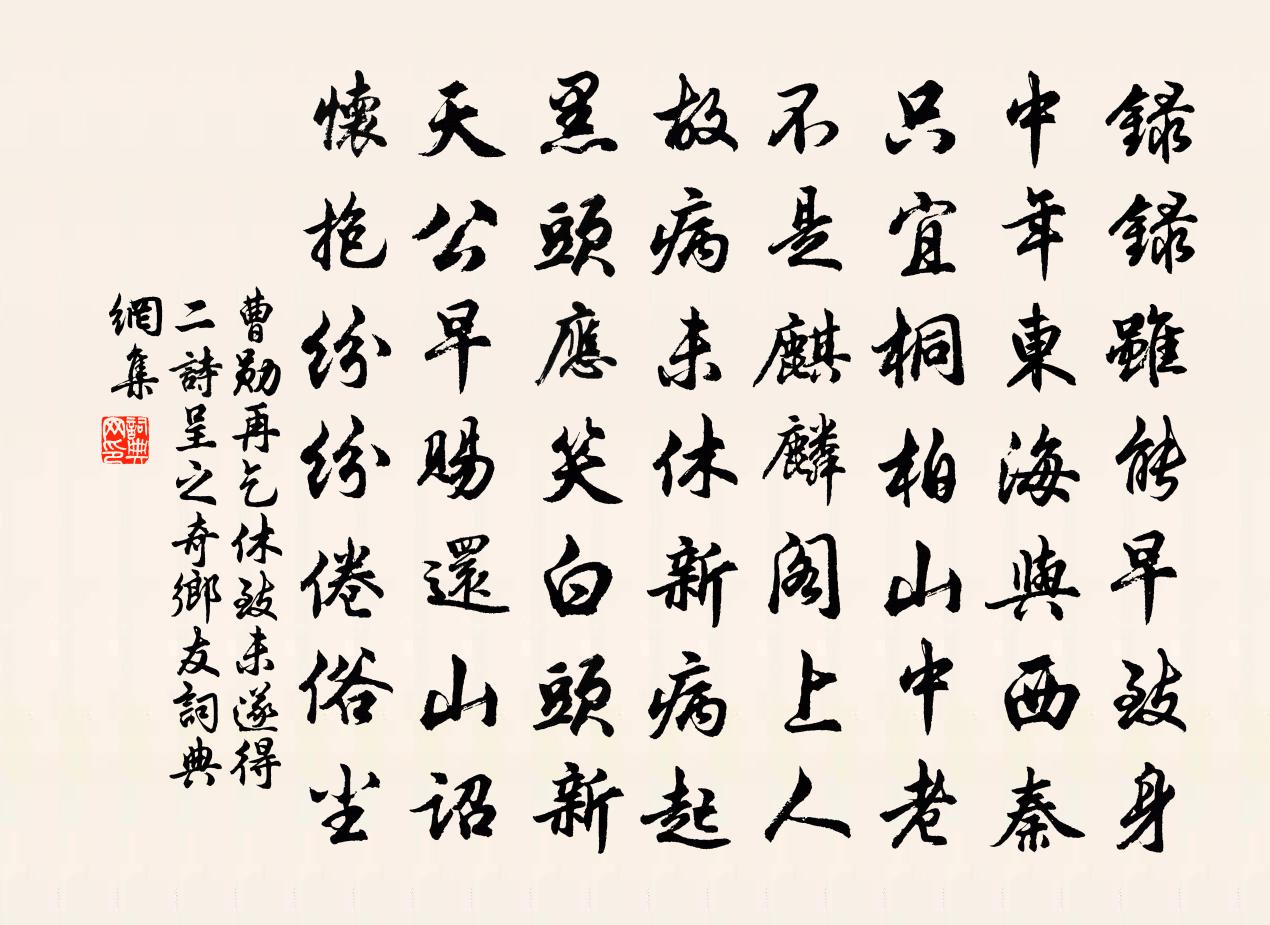 録録雖能早致身
中年東海與西秦
只宜桐柏山中老
不是麒麟閣上人
故病未休新病起
黑頭應笑白頭新
天公早賜還山詔
懷抱紛紛倦俗尘
曹勛再乞休致未遂得
二詩呈之奇鄉友詞典
網集
詞典
网印